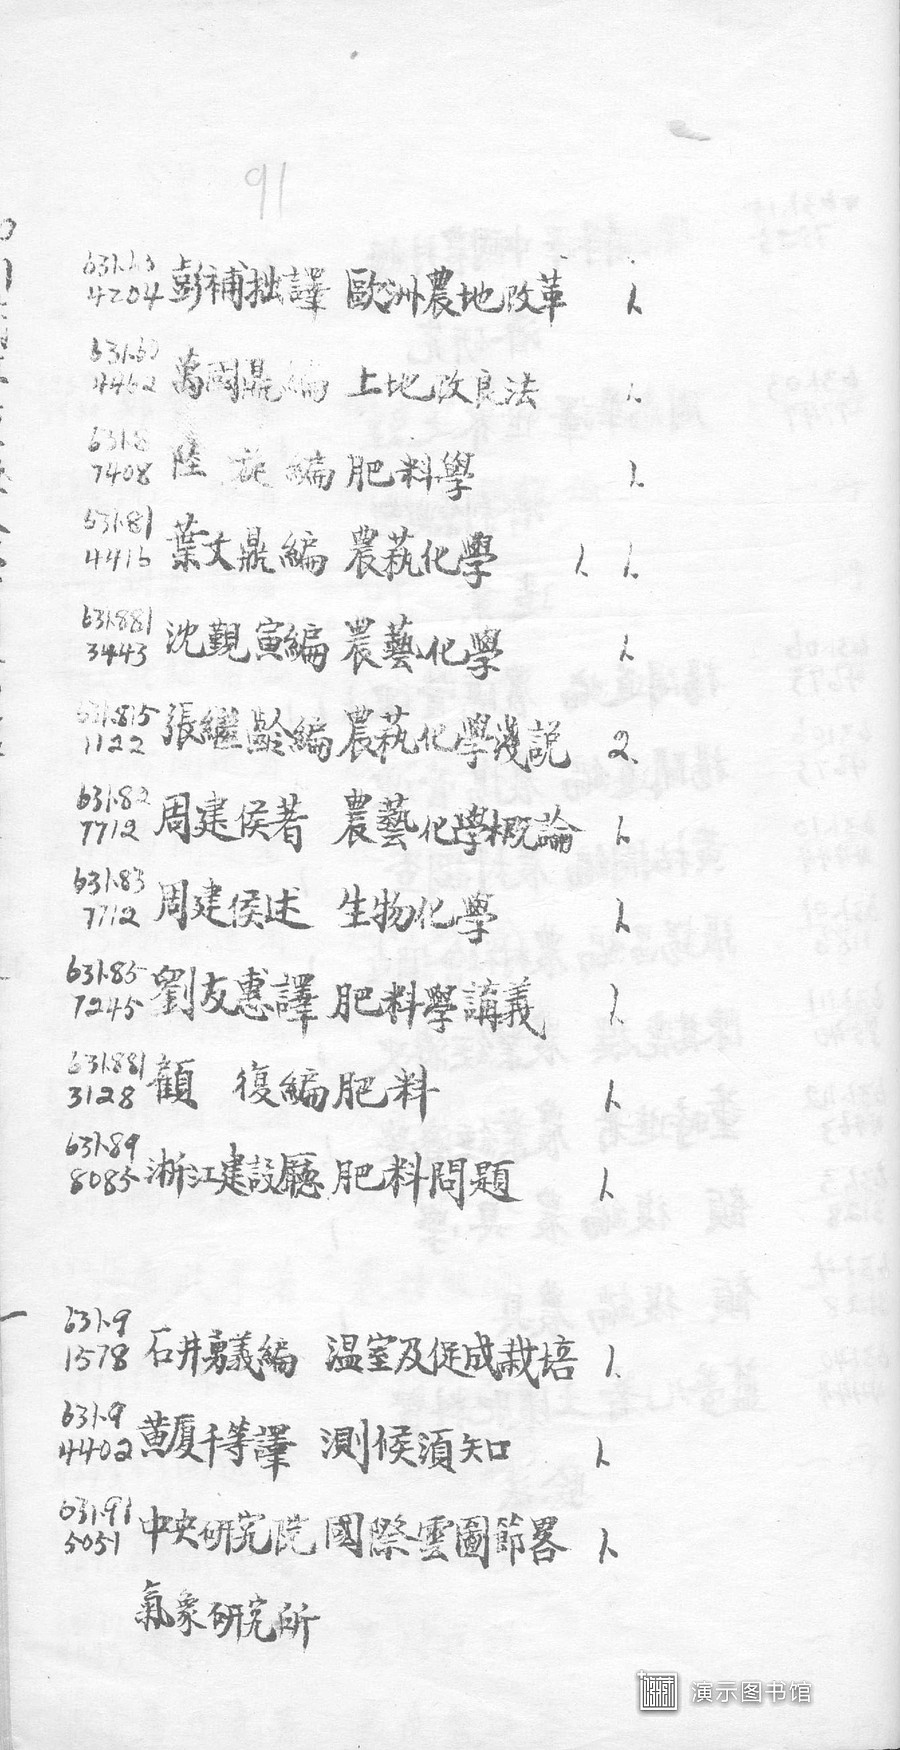 91
631.63
4204 彭補拙譯 歐洲農地改革 1.
631.60
4462 萬國鼎編 土地改良法 1.
631.8
7408 陸旋編 肥料學 1.
631.81
4416 葉文鼎編 農萟化學 1. 1.
631.881
3443 沈覲寅編 農藝化學 1.
631.815
1122 張繼齡編 農萟化學淺説 2.
631.82
7712 周建侯著 農藝化學概論 1.
631.83
7712 周建侯述 生物化學 1.
631.85
7245 劉友惠譯 肥料學講義 1.
631.881
3128 顧復編 肥料 1.
631.89
8085 浙江建設廳 肥料問題 1.
631.9
1578 石井勇義編 温室及促成栽培 1.
631.9
4402 黄厦千等譯 測候須知 1.
631.91
5051 中央研究院 國際雲圖節畧 1.
氣象研究所
演示图书馆